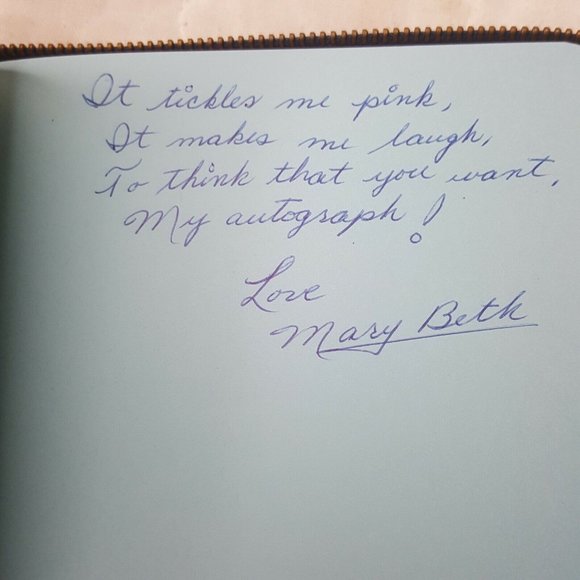 It tickles me pink,
It makes me laugh,
To think that you want,
My autograph!
Love
Mary Beth